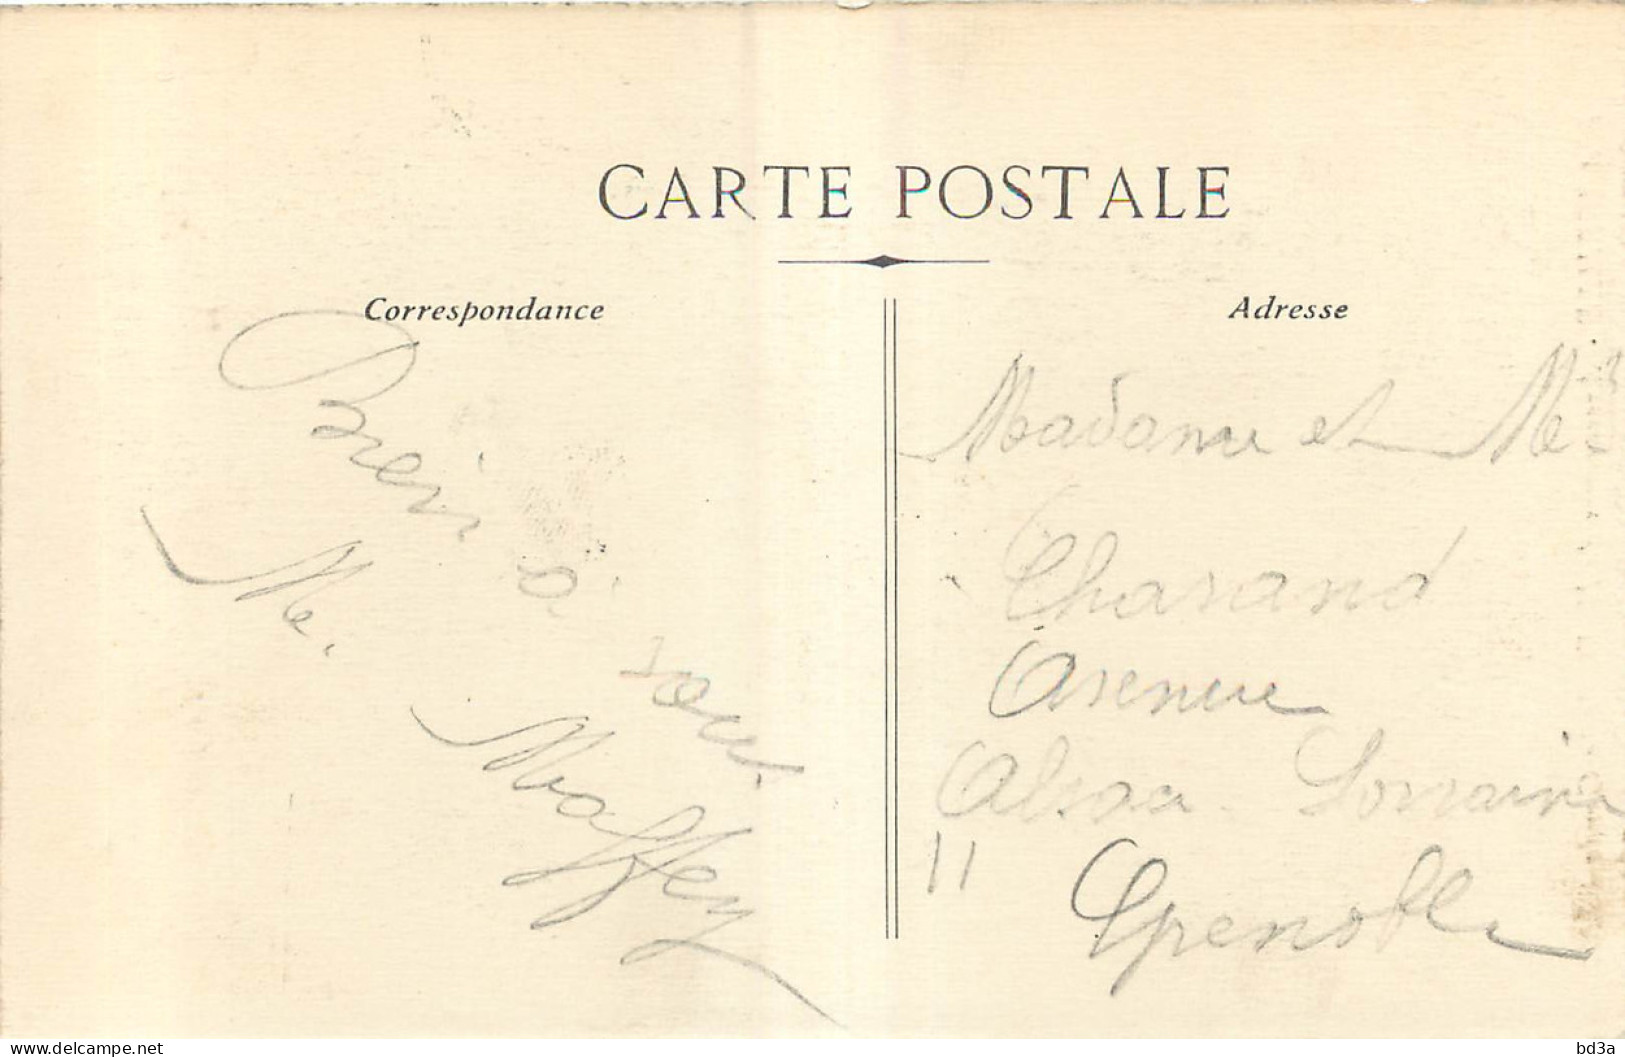 CARTE POSTALE
Correspondance
Bien à vous
Me. Maffey
Adresse
Madame et Mr
Charand
Avenue
Alsace-Lorraine
11 Grenoble
delcampe.net
bd3a